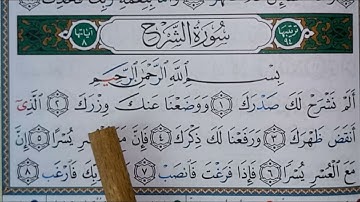 ترتيبها ٩٤ سُورَةُ الشَّرْحِ آياتها ٨
بِسْمِ اللَّهِ الرَّحْمَٰنِ الرَّحِيمِ
أَلَمْ نَشْرَحْ لَكَ صَدْرَكَ ١ وَوَضَعْنَا عَنكَ وِزْرَكَ ٢ الَّذِي
أَنقَضَ ظَهْرَكَ ٣ وَرَفَعْنَا لَكَ ذِكْرَكَ ٤ فَإِنَّ مَعَ الْعُسْرِ يُسْرًا ٥ إِنَّ
مَعَ الْعُسْرِ يُسْرًا ٦ فَإِذَا فَرَغْتَ فَانصَبْ ٧ رَبِّكَ فَارْغَب ٨